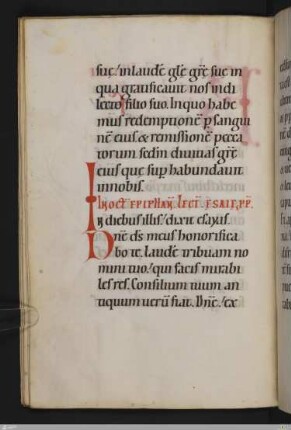 suę / in laudē glę̄ grę̄ suę in
qua gratificauit nos in di
lecto filio suo. In quo habe
mus redemptionē p sangui
nē eius. & remissionē pecca
torum. scdm diuitias grę̄
eius que sup habundauit
in nobis.
IN OCT EPIPHAN. LECT
IN diebus illis / dixit esaias.
Dnē ds meus honorifica
bo te. laudē tribuam no
mini tuo / qui facis mirabi
les res. Consilium tuum an
tiquum uerū fiat. Dnē / ex